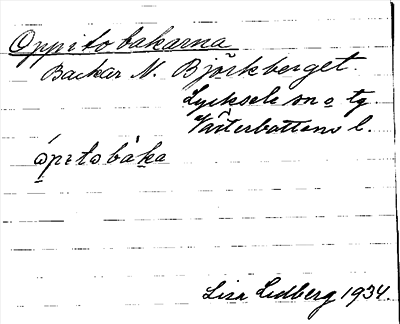 Oppitobakarna
Backar N. Björkberget.
Lycksele sn o tg
Västerbottens l.
ópitobàka
Lisa Lidberg 1934.